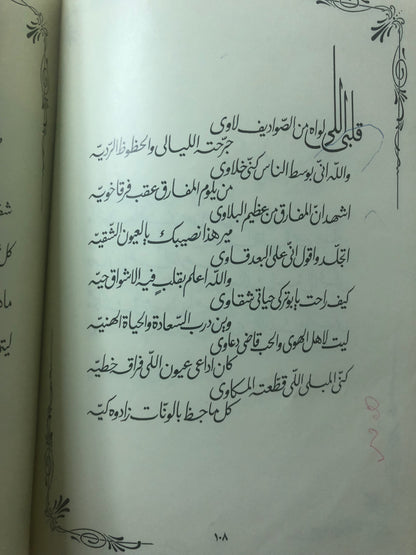 قلبي اللي لواه من الصواديف لاوي
جرّحته الليالي والحظوظ الرديّه
والله انّي بوسط الناس كنّي خلاوي
من يلوم المفارق عقب فرقا خويّه
اشهد انّ المفارق من عظيم البلاوي
مير هذا نصيبك يالعيون الشقيّه
اتجلّد واقول انّي على البعد قاوي
والله اعلم بقلبٍ فيه الاشواق حيّه
كيف راحت يابو تركي حياتي شقاوي
وين درب السّعادة والحياة الهنيّه
ليت لاهل الهوى والحب قاضي دعاوي
كان اداعي عيون اللي فراقه خطيّه
كنّي المبلي اللي قطّعته المكاوي
كل ما جظ بالونّات زادوه كيّه
١٠٨